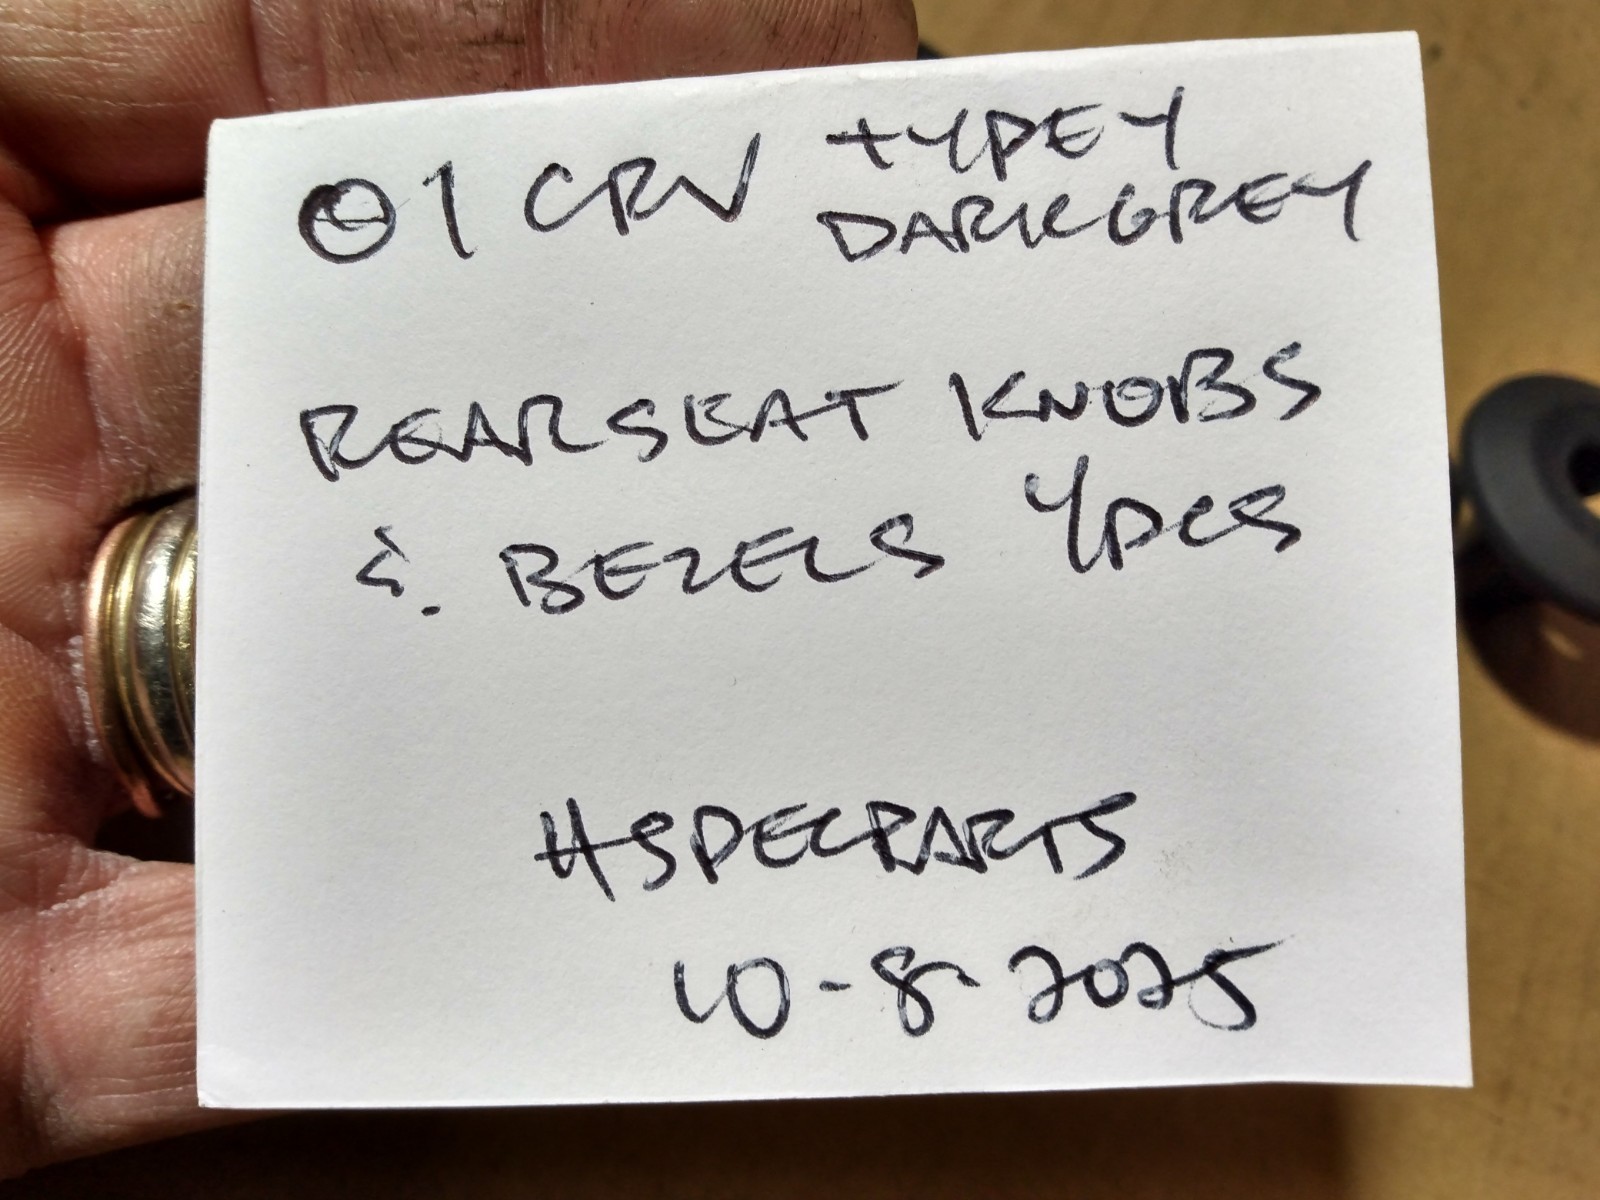 01 CRV TYPE Y
DARK GREY
REAR SEAT KNOBS
& BEZELS 4PCS
#SPECPARTS
10-8-2025